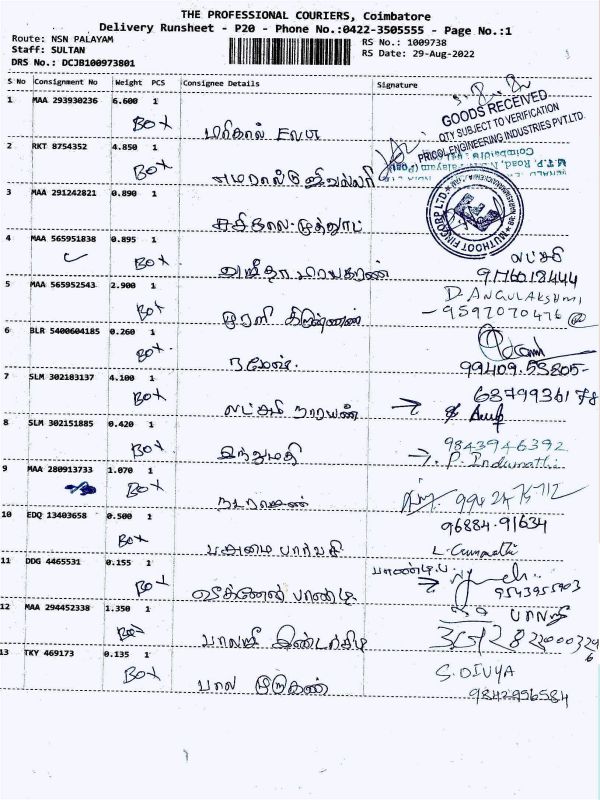 THE PROFESSIONAL COURIERS, Coimbatore
Delivery Runsheet - P20 - Phone No.:0422-3505555 - Page No.:1
Route: NSN PALAYAM
RS No.: 1009738
Staff: SULTAN
RS Date: 29-Aug-2022
DRS No.: DCJB100973801
S No Consignment No Weight PCS Consignee Details Signature
1 MAA 293930236 6.600 1
BOX
GOODS RECEIVED
QTY SUBJECT TO VERIFICATION
PRICOL ENGINEERING INDUSTRIES PVT.LTD.
2 RKT 8754352 4.850 1
BOX
3 MAA 291242821 0.890 1
சசிகலா முத்தூட்
MUTHOOT FINCORP LTD.
4 MAA 565951838 0.895 1
BOX
லட்சுமி
9176018444
5 MAA 565952543 2.900 1
BOX முரளி கிருஷ்ணன்
D. ANGULAKSHMI
- 9597070476
6 BLR 5400604185 0.260 1
BOX ரமேஷ்.
99409.53805-
7 SLM 302183137 4.100 1
BOX லட்சுமி நாராயண்
6379936178
8 SLM 302151885 0.420 1
BOX இந்துமதி
9843946392
P. Indumathi
9 MAA 280913733 1.070 1
BOX நடராஜன்
10 EDQ 13403658 0.500 1
BOX
96884.91634
11 DDG 4465531 0.155 1
BOX வெங்கடேஷ் பாண்டி
பாண்டி.ப
9543955903
12 MAA 294452338 1.350 1
BOX பாலாஜி இண்டஸ்ட்ரி
13 TKY 469173 0.135 1
BOX பால முருகன்
S. DIVYA
9842956584